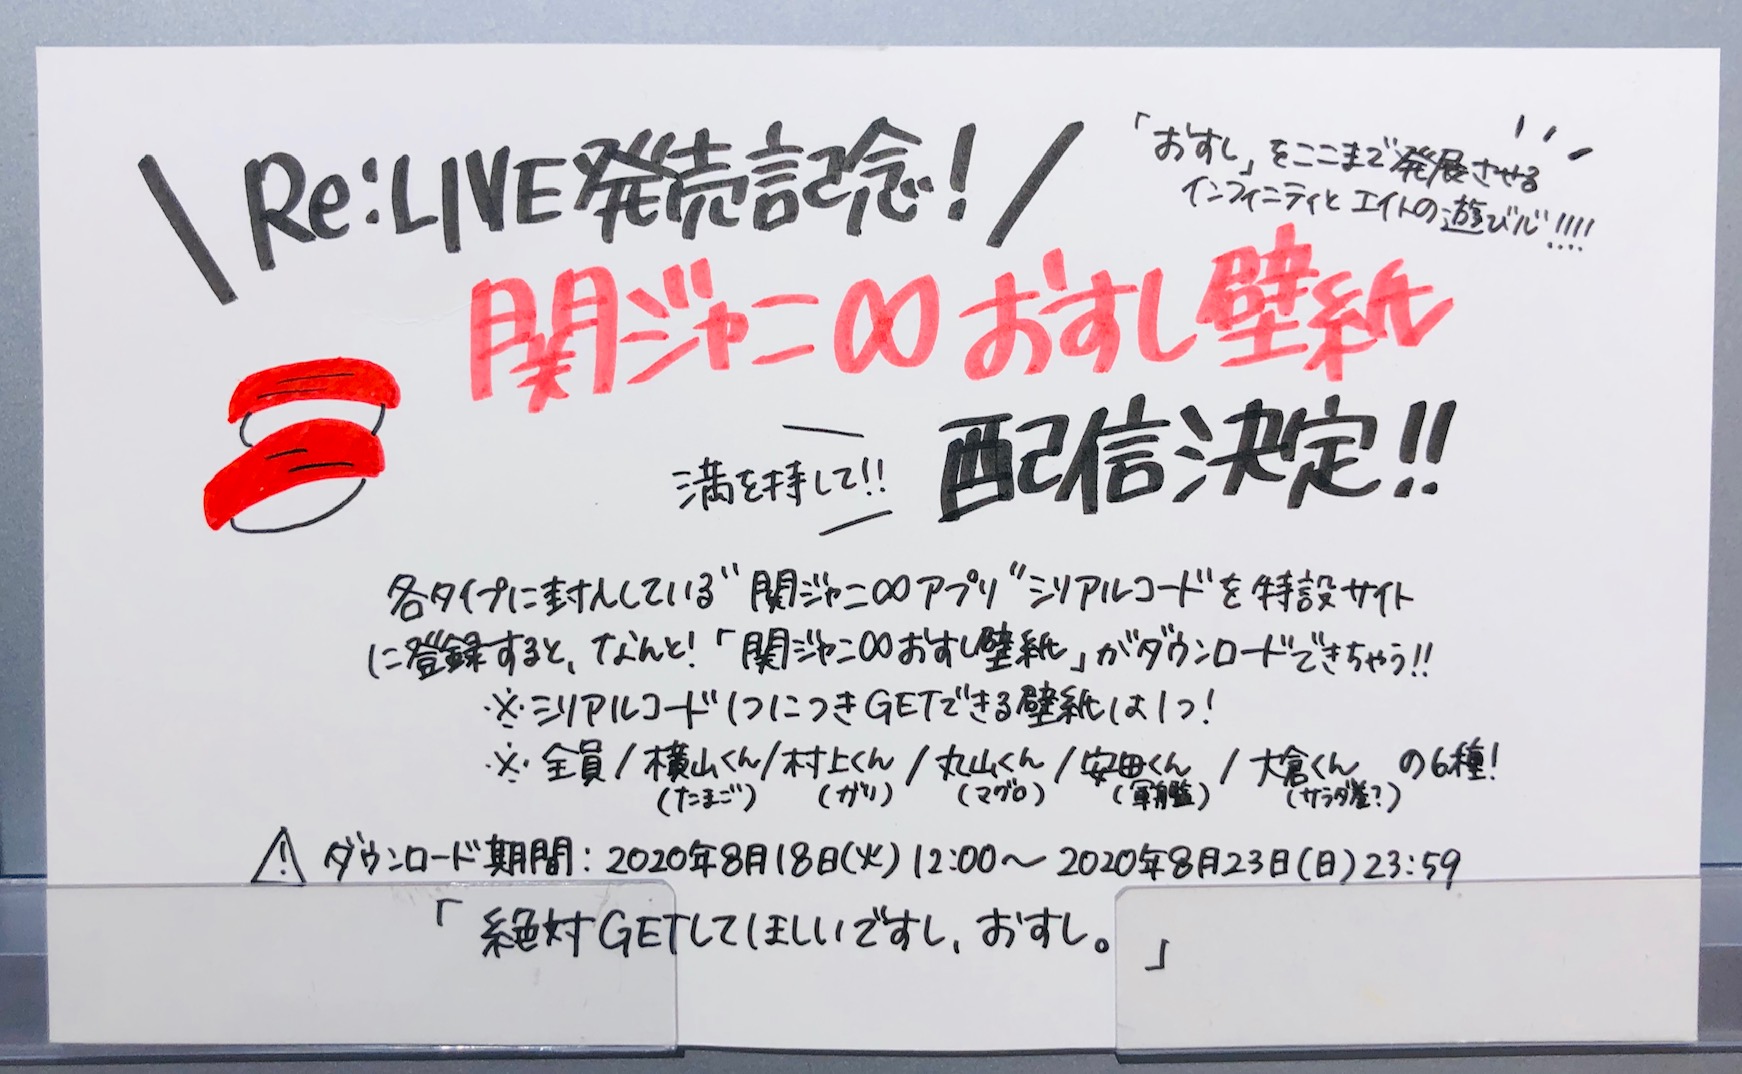 \ Re:LIVE発売記念! /
「おすし」をここまで発展させる
インフィニティとエイトの遊び心!!!!
関ジャニ∞おすし壁紙
満を持して!!
配信決定!!
各タイプに封入している"関ジャニ∞アプリ"シリアルコード"を特設サイト
に登録すると、なんと!「関ジャニ∞おすし壁紙」がダウンロードできちゃう!!
※シリアルコード1つにつきGETできる壁紙は1つ!
※全員/横山くん/村上くん/丸山くん/安田くん/大倉くんの6種!
(たまご) (ガリ) (マグロ) (軍艦) (サラダ巻?)
⚠ダウンロード期間:2020年8月18日(火)12:00〜2020年8月23日(日)23:59
「絶対GETしてほしいですし、おすし。」